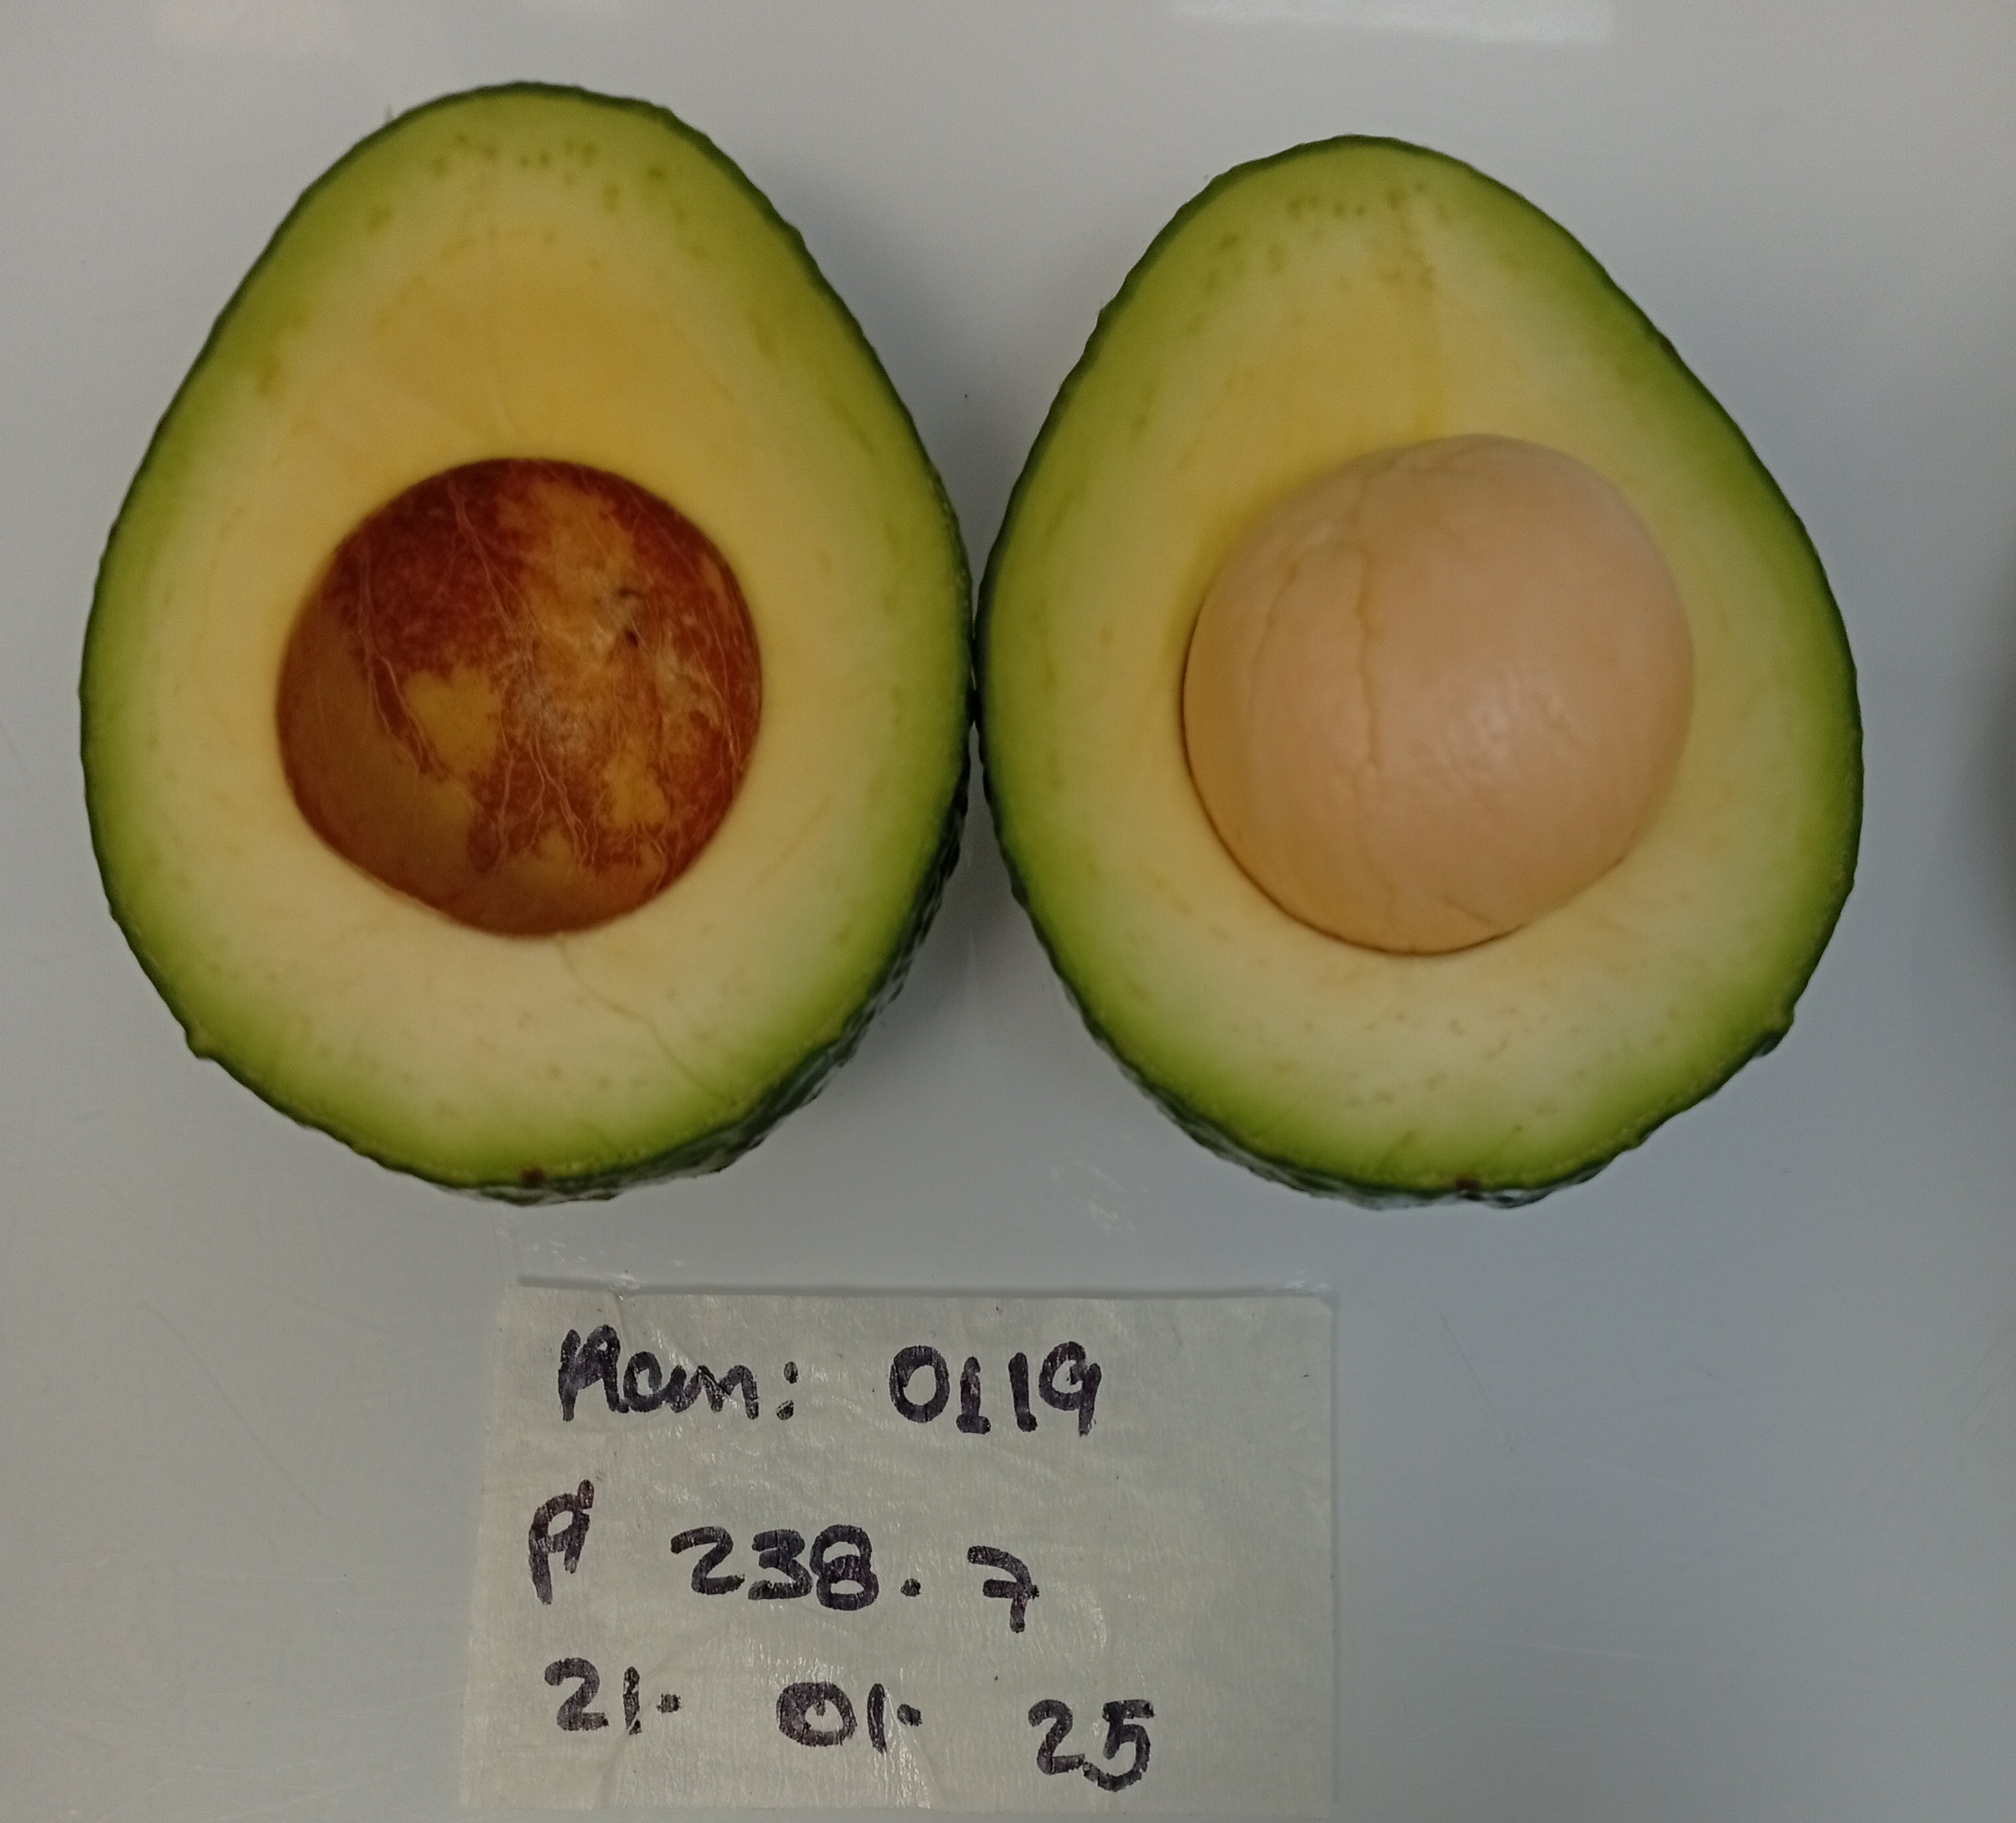 Ram: 0119
P 238.7
21. 01. 25